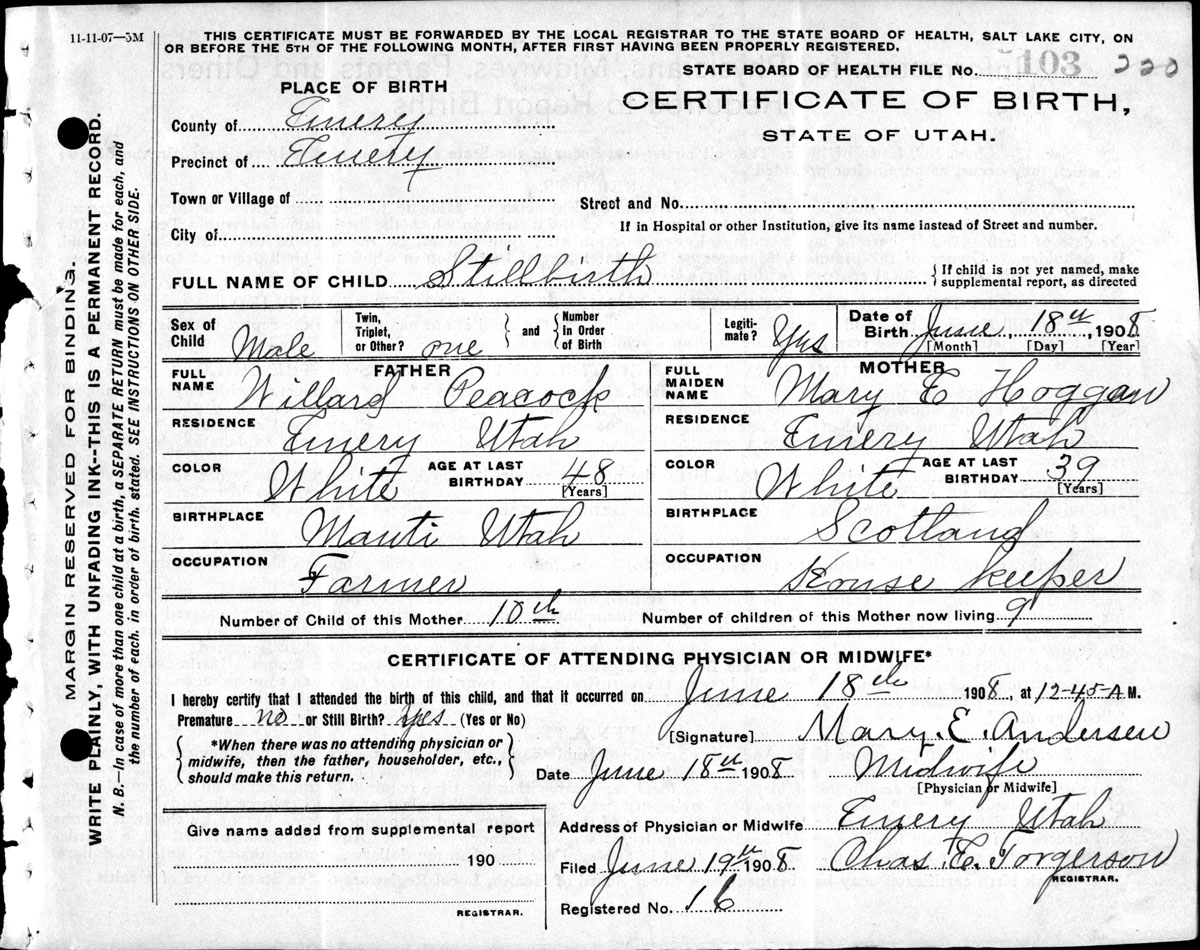 11-11-07—5M
THIS CERTIFICATE MUST BE FORWARDED BY THE LOCAL REGISTRAR TO THE STATE BOARD OF HEALTH, SALT LAKE CITY, ON
OR BEFORE THE 5TH OF THE FOLLOWING MONTH, AFTER FIRST HAVING BEEN PROPERLY REGISTERED.
STATE BOARD OF HEALTH FILE No. 103 220
PLACE OF BIRTH
CERTIFICATE OF BIRTH,
STATE OF UTAH.
County of Emery
Precinct of Emery
Town or Village of
Street and No.
City of
If in Hospital or other Institution, give its name instead of Street and number.
FULL NAME OF CHILD Stillbirth { If child is not yet named, make
supplemental report, as directed
Sex of Child Male
Twin, Triplet, or Other? one } and { Number In Order of Birth
Legitimate? Yes
Date of Birth June 18th 1908
[Month] [Day] [Year]
FATHER
FULL NAME Willard Peacock
RESIDENCE Emery Utah
COLOR White AGE AT LAST BIRTHDAY 48
[Years]
BIRTHPLACE Manti Utah
OCCUPATION Farmer
MOTHER
FULL MAIDEN NAME Mary E Hoggan
RESIDENCE Emery Utah
COLOR White AGE AT LAST BIRTHDAY 39
[Years]
BIRTHPLACE Scotland
OCCUPATION House keeper
Number of Child of this Mother 10th Number of children of this Mother now living 9
CERTIFICATE OF ATTENDING PHYSICIAN OR MIDWIFE*
I hereby certify that I attended the birth of this child, and that it occurred on June 18th 1908, at 12-45-A M.
Premature no or Still Birth? Yes (Yes or No)
{ *When there was no attending physician or
midwife, then the father, householder, etc.,
should make this return. }
[Signature] Mary. E. Andersen
Date June 18th 1908 Midwife
[Physician or Midwife]
Give name added from supplemental report
190
REGISTRAR.
Address of Physician or Midwife Emery Utah
Filed June 19th 1908 Chas E. Torgerson
REGISTRAR.
Registered No. 16
MARGIN RESERVED FOR BINDING.
WRITE PLAINLY, WITH UNFADING INK--THIS IS A PERMANENT RECORD.
N. B.—In case of more than one child at a birth, a SEPARATE RETURN must be made for each, and
the number of each, in order of birth, stated. SEE INSTRUCTIONS ON OTHER SIDE.